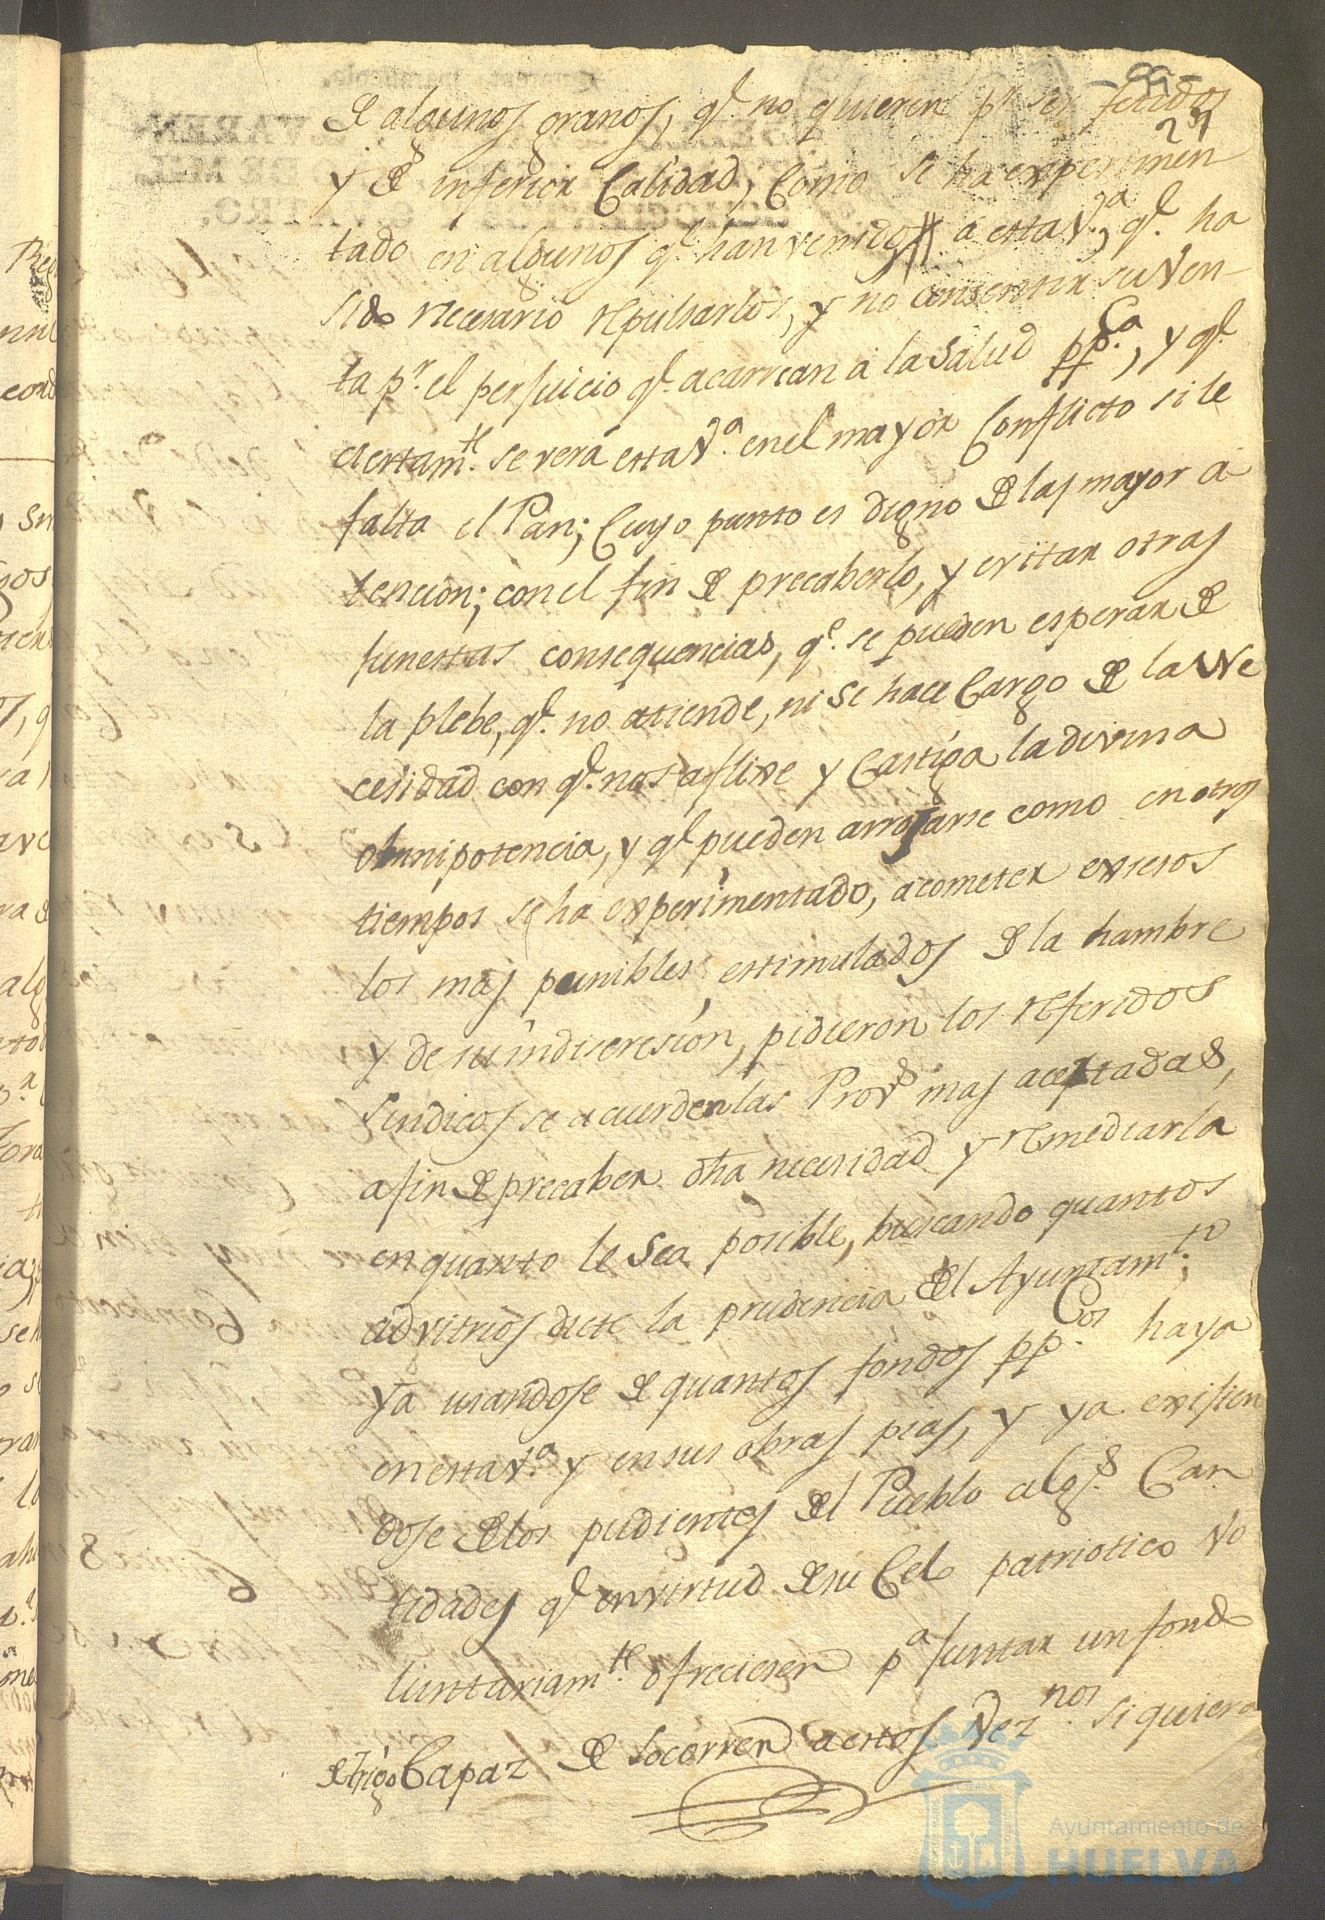 -99-
27
de algunos granos, q.e no quieren p.r ser fetidos
y de inferior Calidad, Como se ha experimen
tado en algunos q.e han venido a esta V.a, q.e ha
sido necesario repulsarlos, y no consentir su Ven-
ta p.r el perjuicio q.e acarrean a la Salud pp.ca, y q.e
ciertam.te se verá esta V.a en el mayor Conflicto si le
falta el Pan; Cuyo punto es digno de las mayor a
tencion; con el fin de precaberlo, y evitar otras
funestas consequencias, q.e se pueden esperar de
la plebe, q.e no atiende, ni se hace Cargo de la Ne
cesidad con q.e nos aflixe y Castiga la divina
omnipotencia, y q.e pueden arrojarse como en otros
tiempos se ha experimentado, a cometer exsesos
los mas punibles, estimulados de la hambre
y de su indiscresion, pidieron los referidos
Sindicos se acuerden las Prov.s mas acertadas,
a fin de precaber dha necesidad y remediarla
en quanto le sea posible, buscando quantos
advitrios dicte la prudencia del Ayuntam.to;
Ya usandose de quantos fondos pp.cos haya
en esta V.a y en sus obras pias, y ya exsijien
dose de los pudientes del Pueblo alg.s Can
tidades q.e en virtud de su Celo patriotico vo
luntariam.te ofrecieren p.a juntar un fondo
de trigo Capaz de socorrer a estos Vez.nos si quiera
Ayuntamiento de
HUELVA